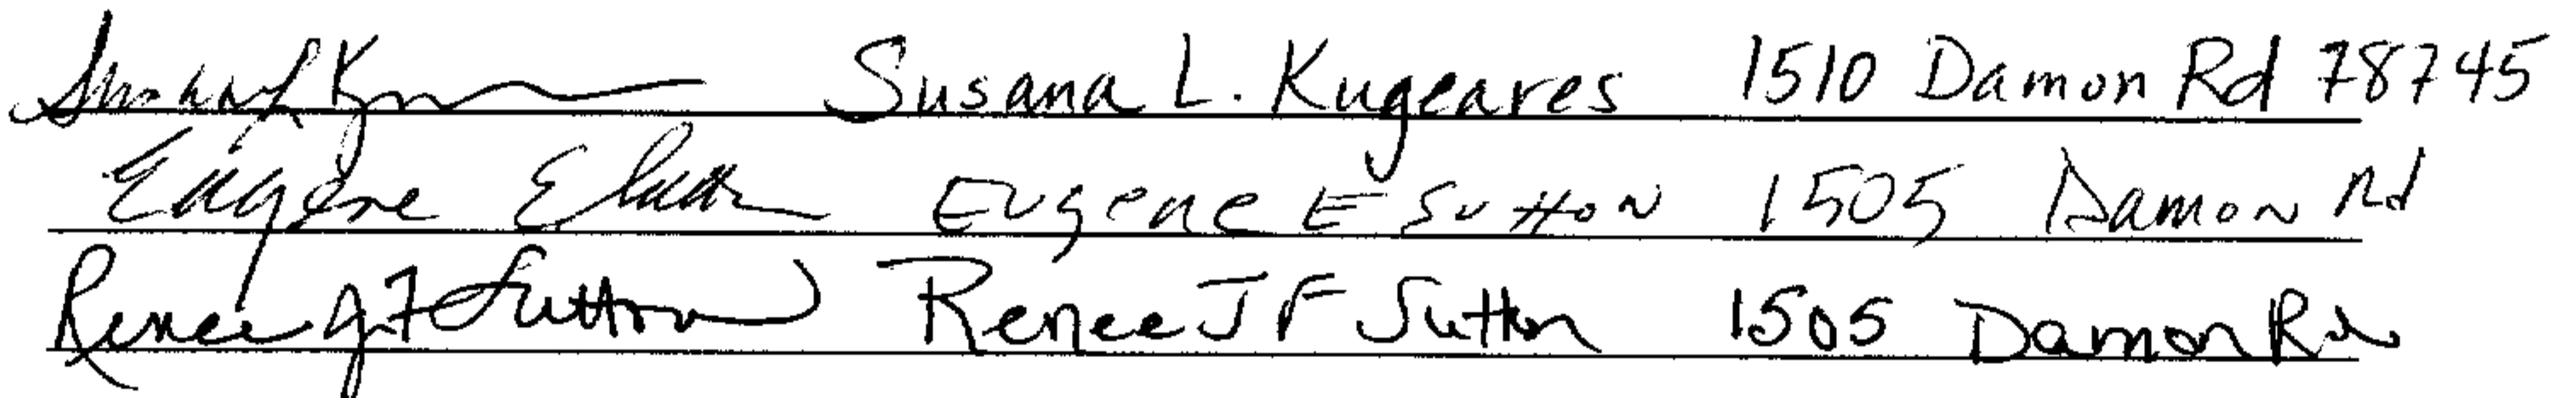 Susana L. Kugeares 1510 Damon Rd 78745
Eugene E Sutton Eugene E Sutton 1505 Damon Rd
Renee J F Sutton Renee J F Sutton 1505 Damon Rd